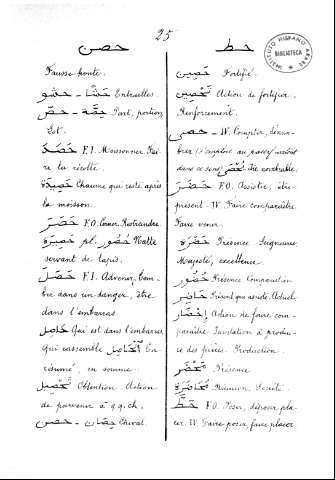 25
حصن
حط
INSTITUTO HISPANO ARABE
BIBLIOTECA
Fausse honte.
حشا - حشو Entrailles.
حصّة - حصّ Part, portion
Lot.
حصد F.I. Moissonner. Fai-
re la récolte.
حصيدة Chaume qui reste après
la moisson.
حصر F.O. Cerner. Restreindre.
حصيرة pl. حصور Natte
servant de tapis.
حصل F.I. Advenir. Tom-
ber dans un danger, être
dans l'embarras.
حاصل Qui est dans l'embarras
Qui rassemble الحاصل En
résumé, en somme.
تحصيل Obtention. Action
de parvenir à q.q. ch.
حصان - حصن Cheval.
حصين Fortifié.
تحصين Action de fortifier.
Renforcement.
حصى - IV. Compter, dénom-
brer (s'emploie au passif surtout
dans ce sens) être
حضر F.O. Assister, être
présent. IV. Faire comparaître
Faire venir.
حضرة Présence Seigneurie,
Majesté, excellence.
حضور Présence Comparution
حاضر Présent, qui assiste. Actuel.
إحضار Action de faire com-
paraître. Invitation à produi-
re des pièces. Production.
محضر Présence
محاضرة Réunion. Société.
حطّ F.O. Poser, déposer, pla-
cer. IV. Faire poser, faire placer.